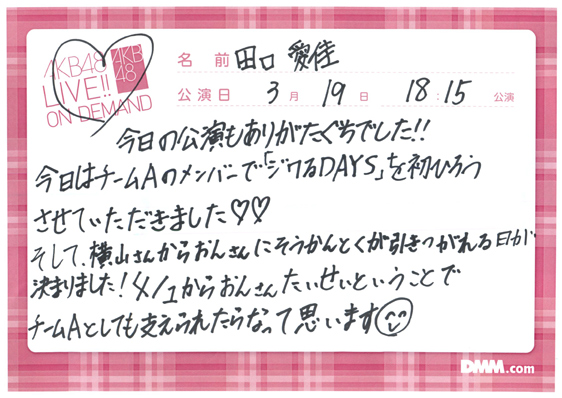 AKB48
LIVE!!
ON DEMAND
AKB
48
名前 田口 愛佳
公演日 3月19日 18:15 公演
今日の公演もありがたぐちでした!!
今日はチームAのメンバーで「ジワるDAYS」を初ひろう
させていただきました♡♡
そして、横山さんからおんさんにそうかんとくが引きつがれる日が
決まりました！4/1からおんさんたいせいということで
チームAとしても支えられたらなって思います
DMM.com